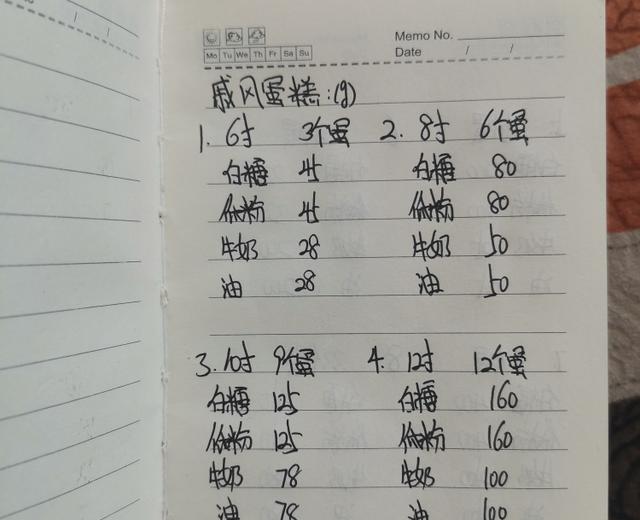 Memo No.
Mo Tu We Th Fr Sa Su
Date / /
戚风蛋糕:(g)
1. 6寸 3个蛋 2. 8寸 6个蛋
白糖 45 白糖 80
低粉 45 低粉 80
牛奶 28 牛奶 50
油 28 油 50
3. 10寸 9个蛋 4. 12寸 12个蛋
白糖 125 白糖 160
低粉 125 低粉 160
牛奶 78 牛奶 100
油 78 油 100